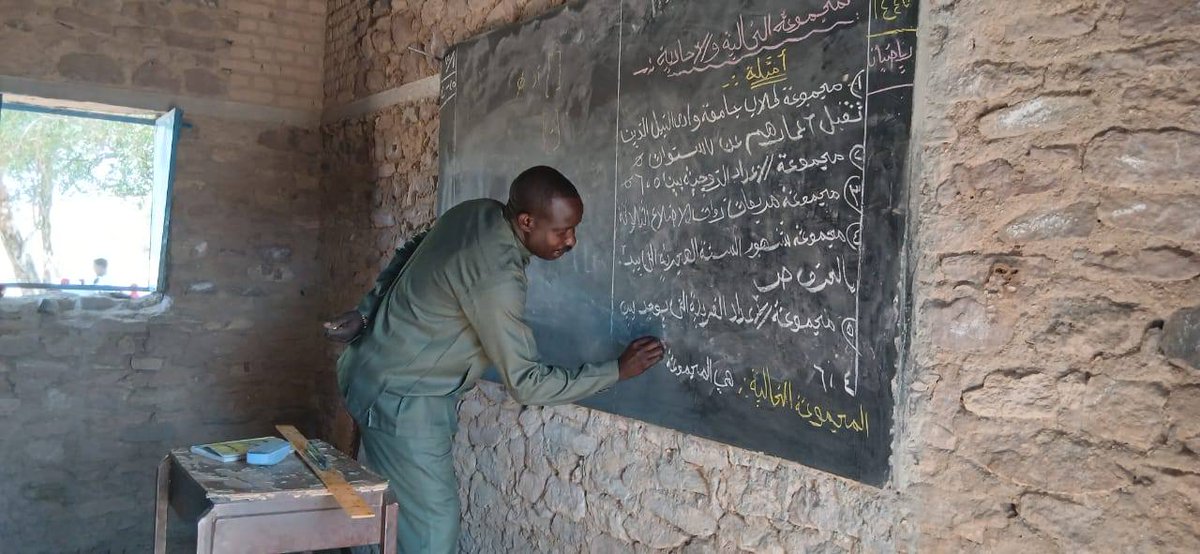 رياضيات
مجموعة الخالية والاحادية :-
أمثلة :
١) مجموعة طلاب جامعة وادى النيل الذين
تقل أعمارهم عن
٢) مجموعة الأعداد الزوجية بين ٥ ، ٦
٣) مجموعة مربعات زوات الاضلاع الثلاثة
٤) مجموعة شهور السنة الهجرية التى
بالحرف ص
٥) مجموعة الأعداد الفردية التى يوجد بين
٤ ، ٦
المجموعة الخالية : هى المجموعة